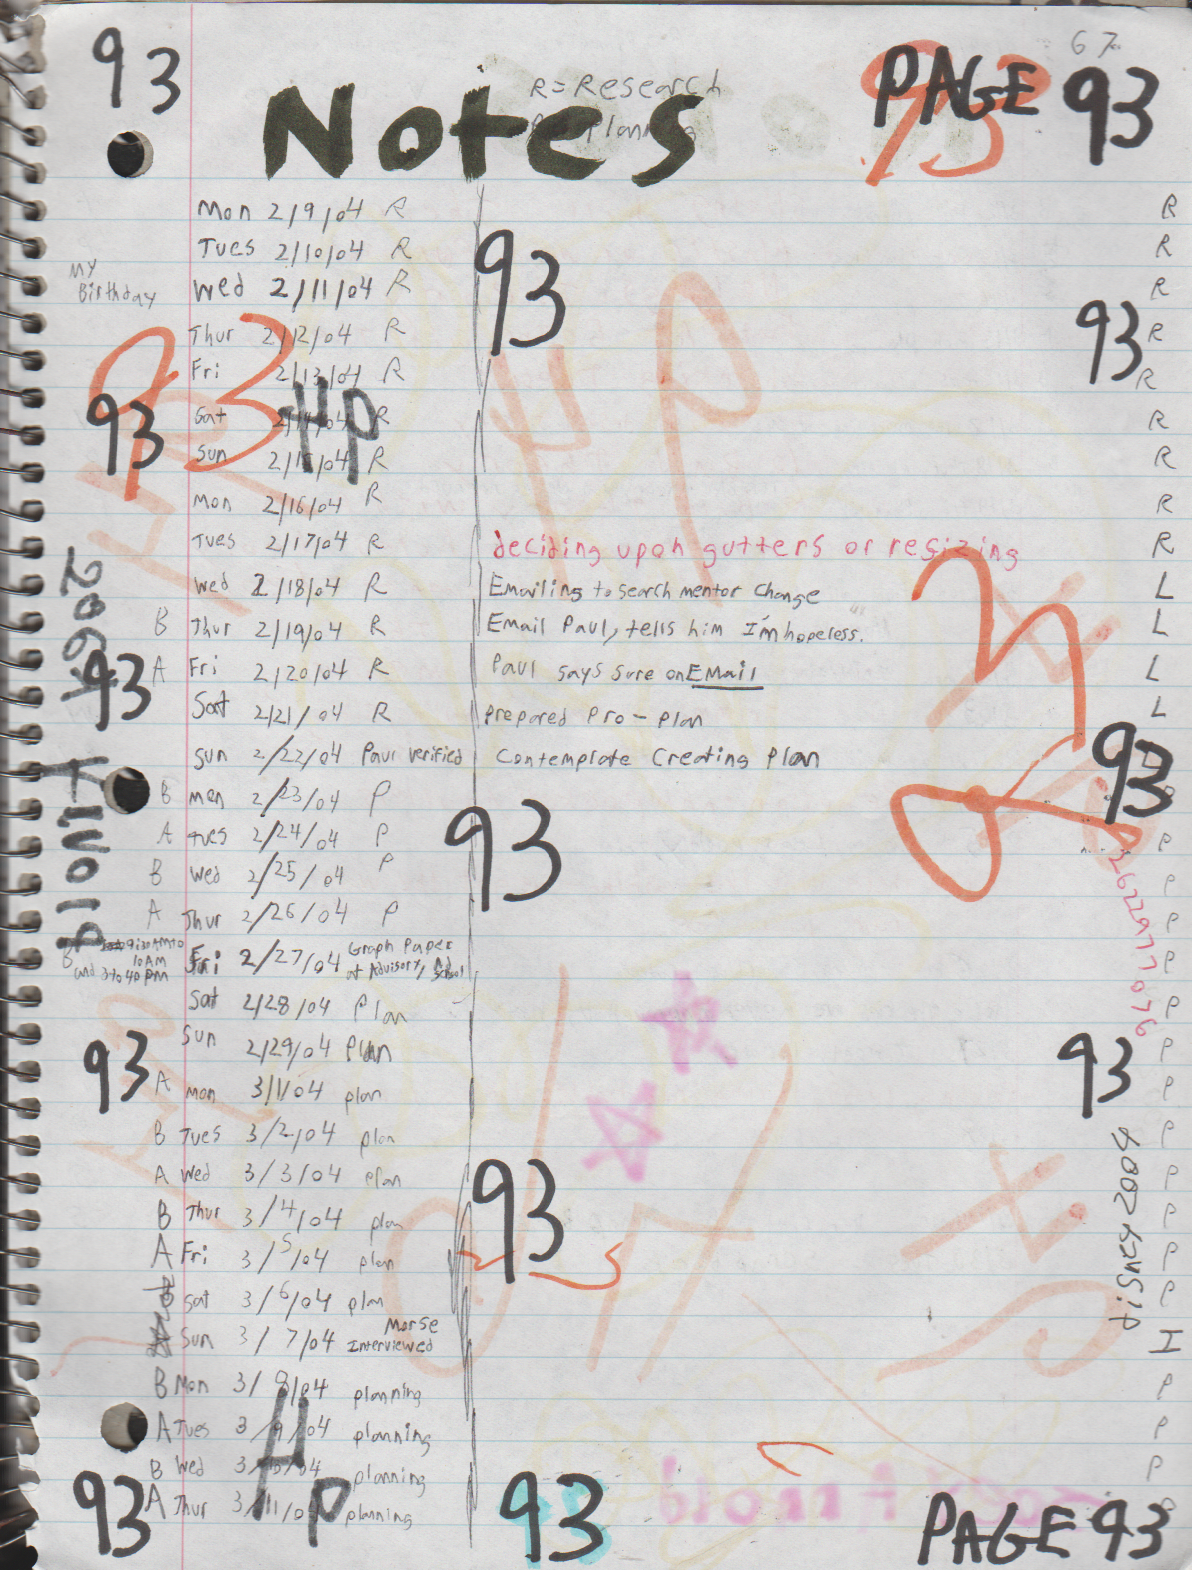 67
93
PAGE 93
R=Research
Notes
Planning
93
Mon 2/9/04 R R
Tues 2/10/04 R R
93
My Birthday Wed 2/11/04 R R
Thur 2/12/04 R R
93
Fri 2/13/04 R R
93
Sat 2/14/04 R R
4p
93
Sun 2/15/04 R R
Mon 2/16/04 R R
Tues 2/17/04 R deciding upon gutters or resizing R
Wed 2/18/04 R Emailing to search mentor change L
B Thur 2/19/04 R Email Paul, tells him I'm hopeless. L
A Fri 2/20/04 R Paul says sure on EMail L
93
Sat 2/21/04 R prepared Pro-plan L
Sun 2/22/04 Paul verified Contemplate Creating Plan
93
B Mon 2/23/04 P
A Tues 2/24/04 P P
93
B Wed 2/25/04 P P
A Thur 2/26/04 P P
B 9:30AM to 10AM and 3 to 4 pm Fri 2/27/04 Graph Paper at Advisory, school P
Sat 2/28/04 Plan P
Sun 2/29/04 Plan P
93
93
A Mon 3/1/04 plan P
B Tues 3/2/04 plan P
A Wed 3/3/04 plan P
93
B Thur 3/4/04 plan P
A Fri 3/5/04 plan P
Sat 3/6/04 plan P
Sun 3/7/04 Morse Interviewed I
B Mon 3/8/04 planning P
A Tues 3/9/04 planning P
B Wed 3/10/04 planning P
A Thur 3/11/04 planning
4p
93
93
PAGE 93